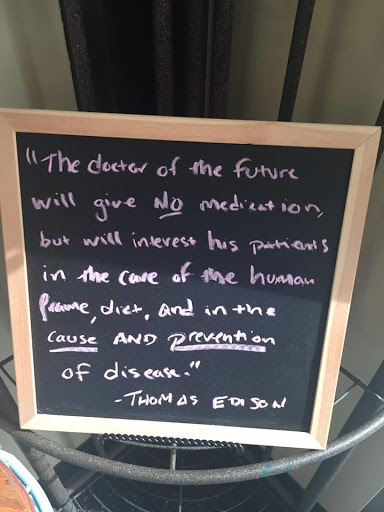 "The doctor of the future
will give NO medication,
but will interest his patients
in the care of the human
frame, diet, and in the
cause AND prevention
of disease."
-THOMAS EDISON